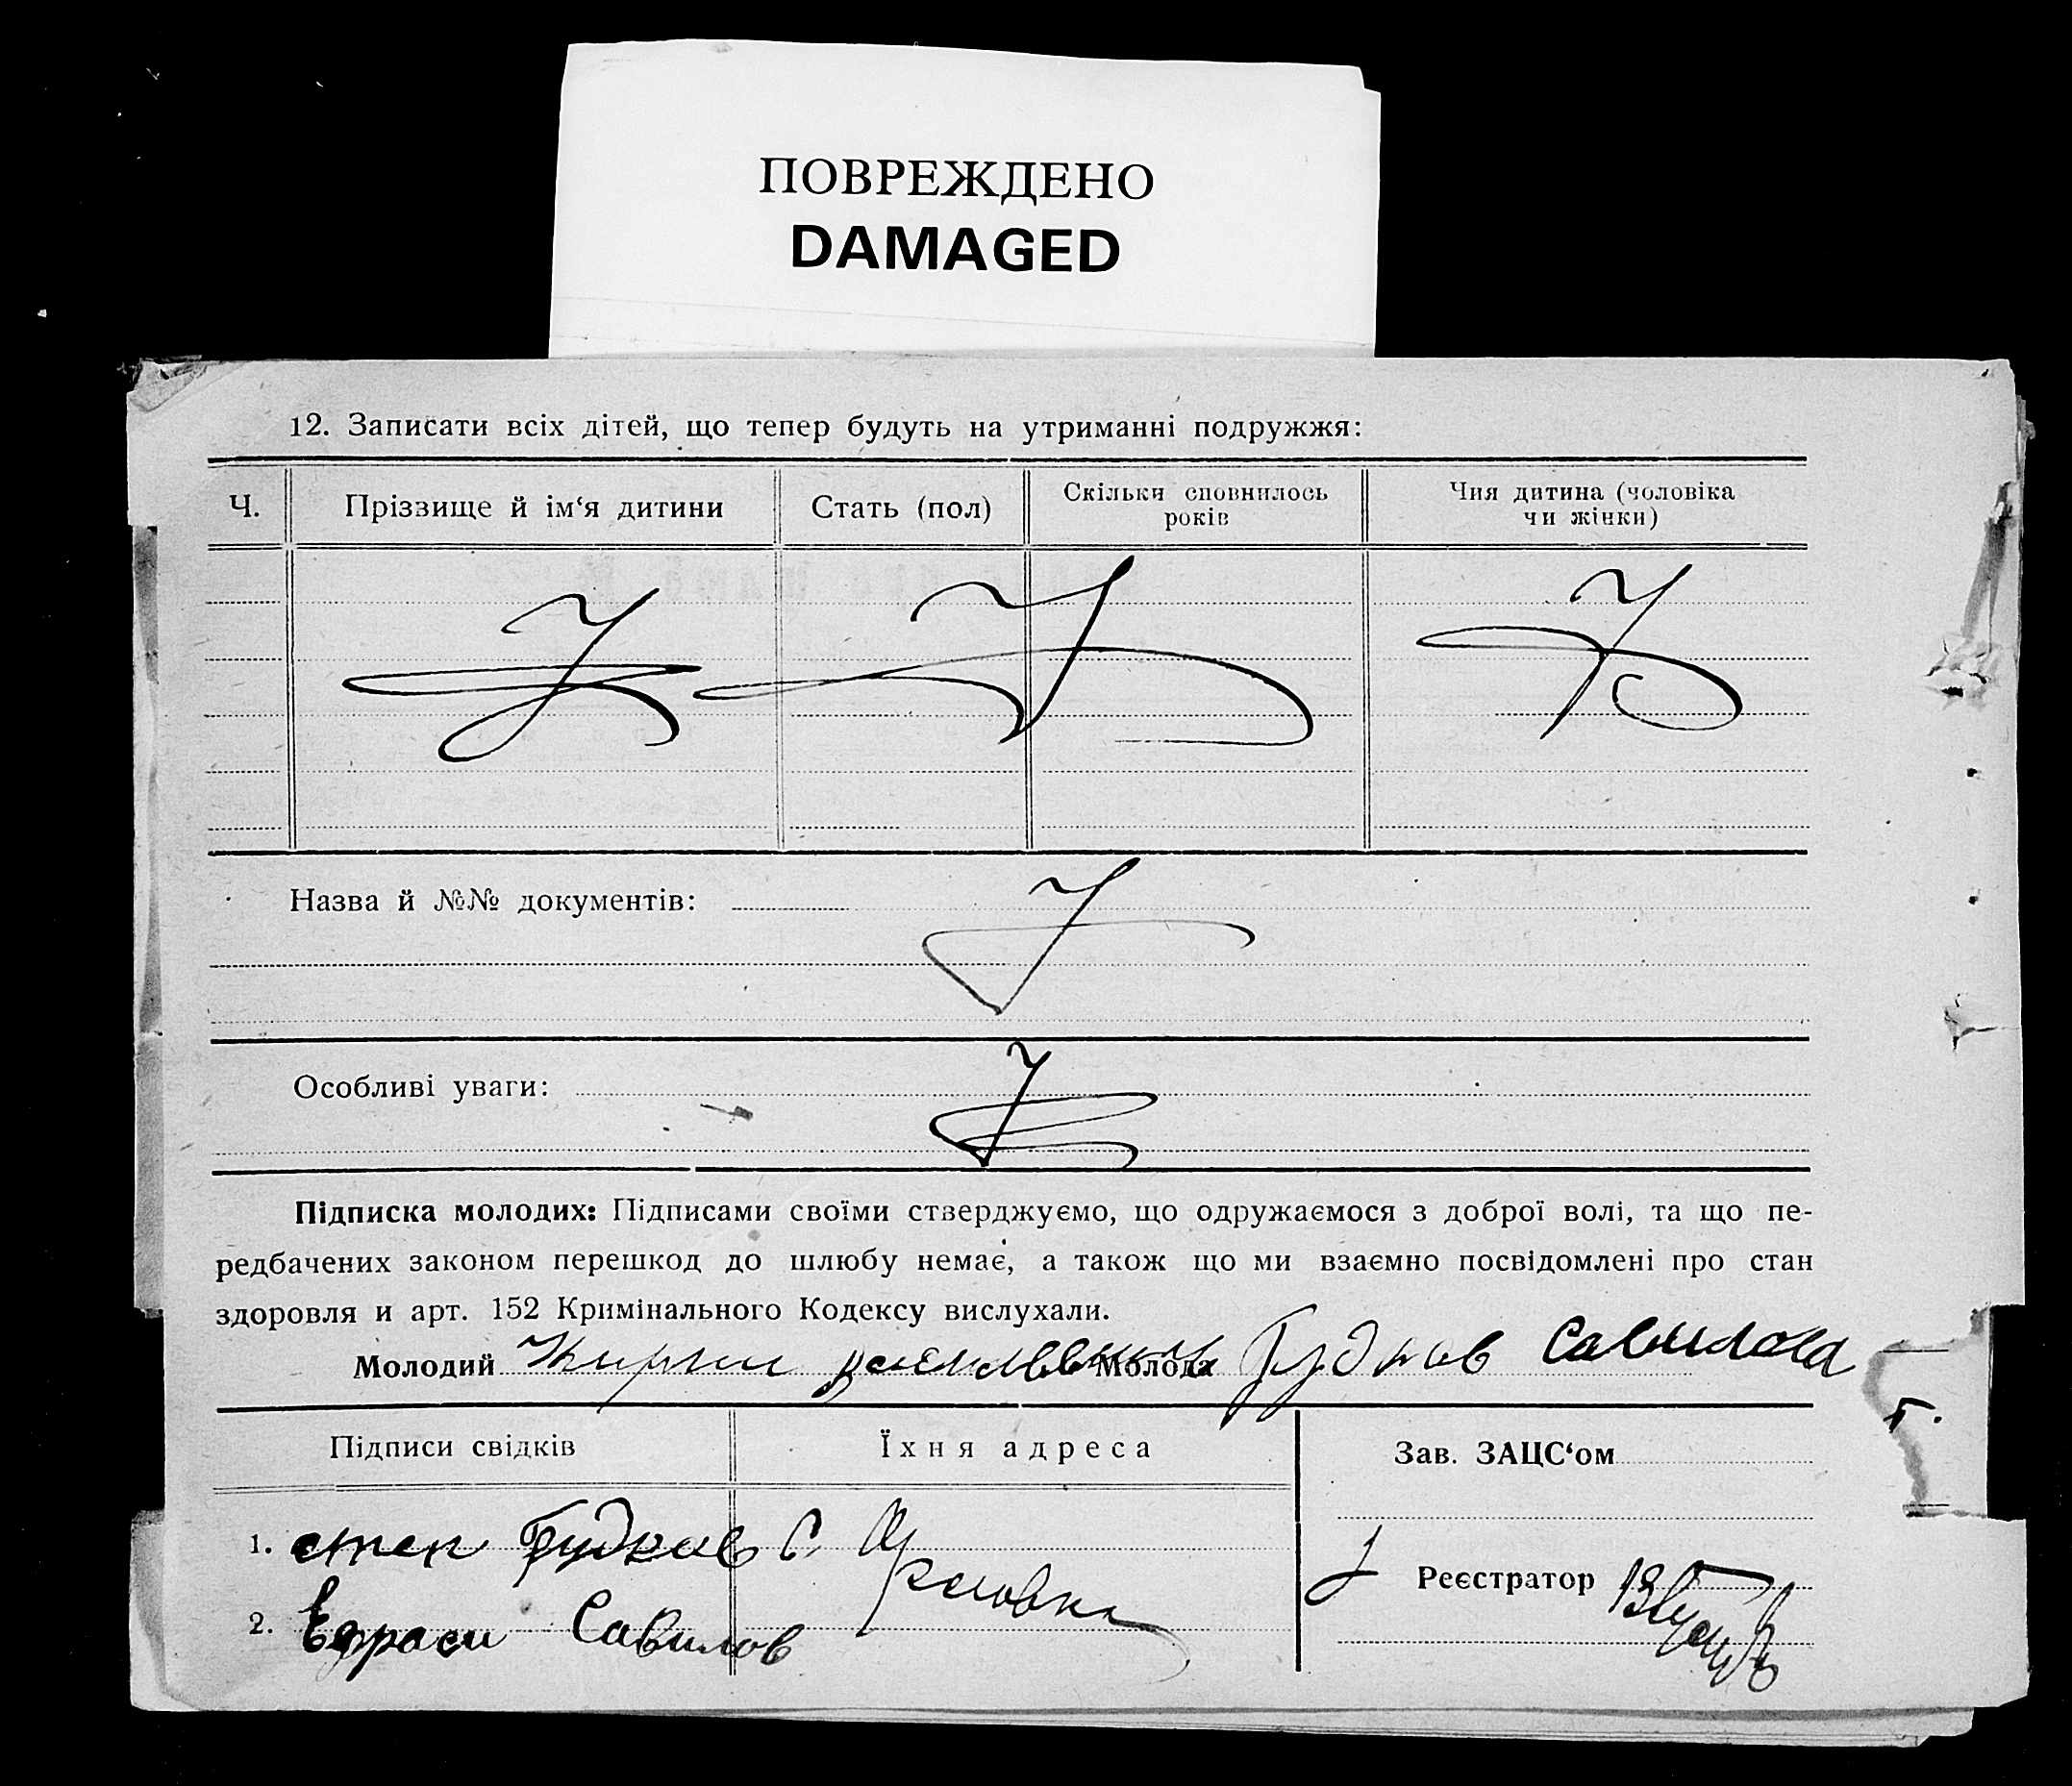 ПОВРЕЖДЕНО
DAMAGED
12. Записати всіх дітей, що тепер будуть на утриманні подружжя:
Ч. Прізвище й ім‘я дитини Стать (пол) Скільки сповнилось років Чия дитина (чоловіка чи жінки)
Назва й №№ документів:
Особливі уваги:
Підписка молодих: Підписами своїми стверджуємо, що одружаємося з доброї волі, та що пе-
редбачених законом перешкод до шлюбу немає, а також що ми взаємно посвідомлені про стан
здоровля и арт. 152 Кримінального Кодексу вислухали.
Молодий Молода Гудков Савилова
Підписи свідків Їхня адреса Зав. ЗАЦС‘ом
1. степ Гудков С
Реєстратор
2. Савилов